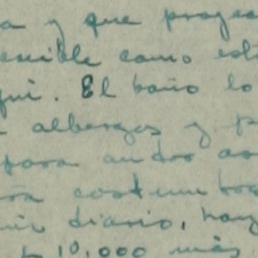 a y que proges
sensible como est
qui. El baño lo
albergos y p
para andro
costumbre
diario, hay
10,000 más